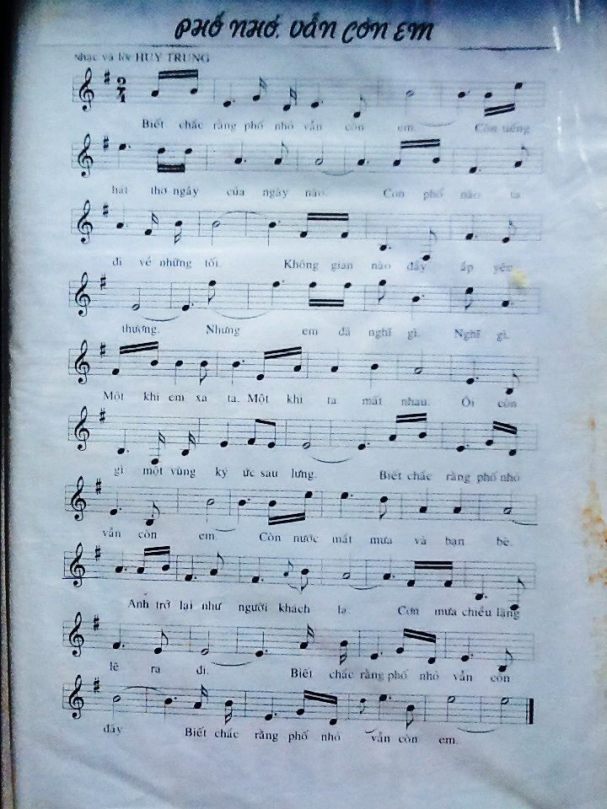 PHỐ NHỎ. VẪN CÒN EM
Nhạc và lời HUY TRUNG
2
4
Biết chắc rằng phố nhỏ vẫn còn em. Còn tiếng
hát thơ ngây của ngày nào. Cơn phố nào ta
đi về những tối. Không gian nào đầy ắp yêu
thương. Nhưng em đã nghĩ gì. Nghĩ gì.
Một khi em xa ta. Một khi ta mất nhau. Ôi còn
gì một vùng ký ức sau lưng. Biết chắc rằng phố nhỏ
vẫn còn em. Còn nước mắt mưa và bạn bè.
Anh trở lại như người khách lạ. Cơn mưa chiều lặng
lẽ ra đi. Biết chắc rằng phố nhỏ vẫn còn
đây. Biết chắc rằng phố nhỏ vẫn còn em.